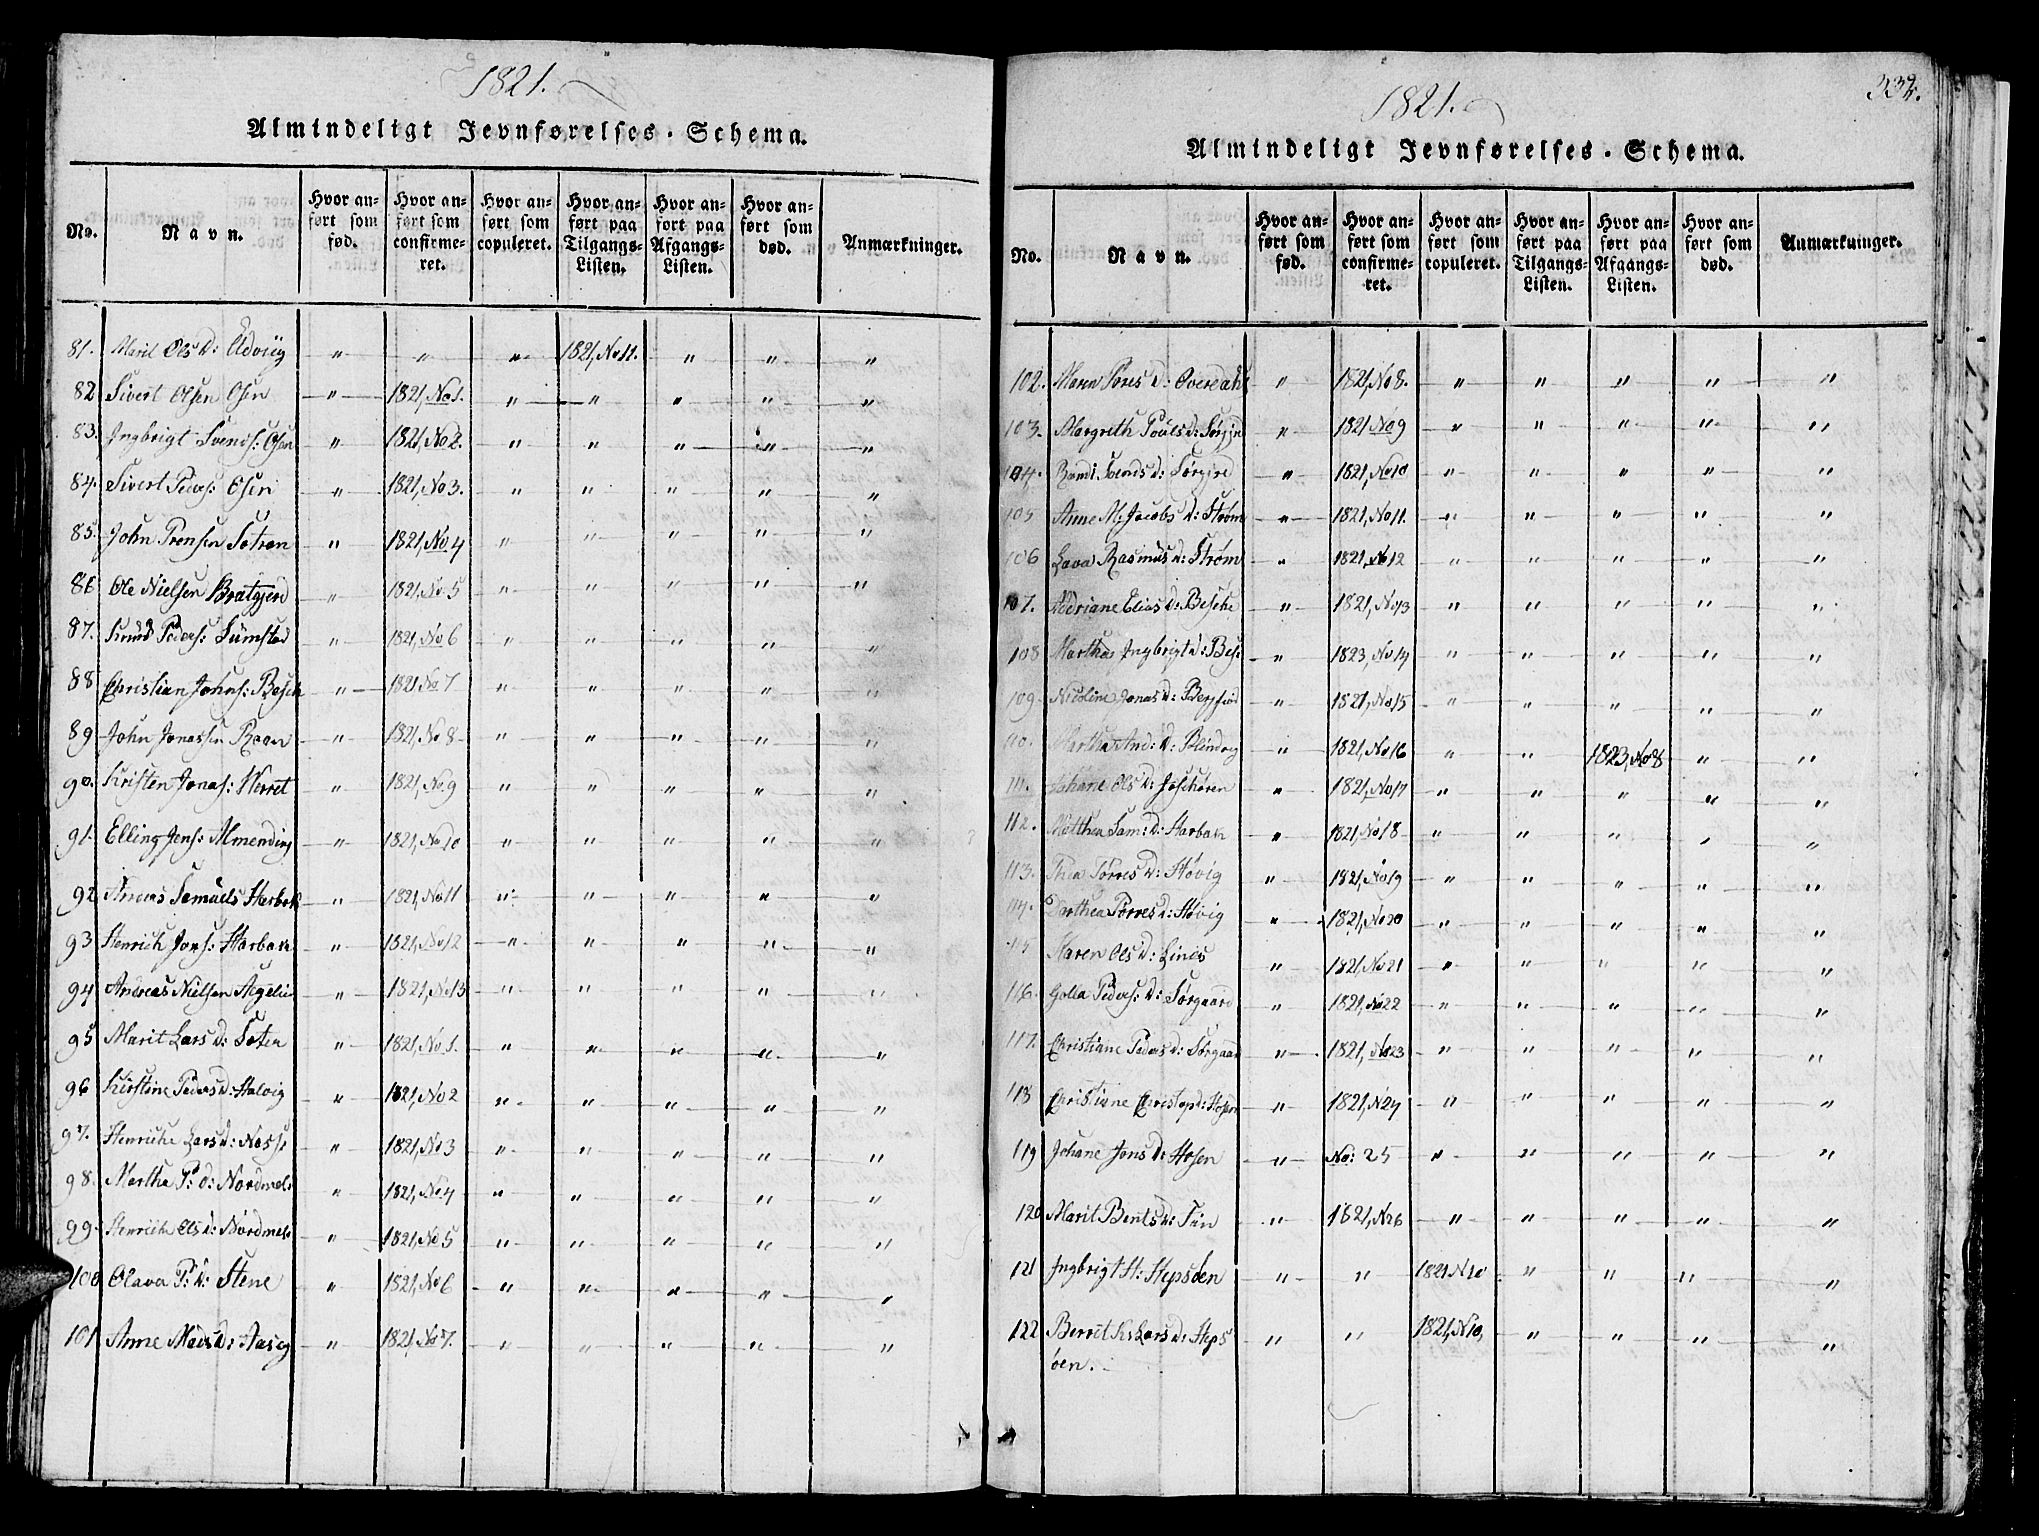 1821.
Almindeligt Jevnførelses-Schema.
No. Navn. Hvor anført som fød. Hvor anført som confirmeret. Hvor anført som copuleret. Hvor anført paa Tilgangs-Listen. Hvor anført paa Afgangs-Listen. Hvor anført som død. Anmærkninger.
81. Marit Ols d: Udviig " " " 1821, No 11. " " "
82 Sivert Olsen Osen " 1821, No 1. " " " " "
83. Ingbrigt Svends: Osen " 1821, No 2. " " " " "
84. Sivert Peders: Osen " 1821, No 3. " " " " "
85. John Trensen Sætran " 1821, No 4 " " " " "
86 Ole Nielsen Bratgjerd " 1821, No 5 " " " " "
87. Knud Peders: Sumstad " 1821, No 6 " " " " "
88 Christian Johns: Besck " 1821 No 7 " " " " "
89 John Jonassen Raan " 1821, No 8 " " " " "
90. Kristen Jonas: Werret " 1821, No 9 " " " " "
91. Elling Jens: Almending " 1821, No 10 " " " " "
92 Andreas Samuels Harbak " 1821, No 11 " " " " "
93 Henrich Jons: Harbak " 1821, No 12 " " " " "
94 Andreas Nielsen " 1821, No 13 " " " " "
95 Marit Lars d: Sæter " 1821, No 1. " " " " "
96 Kirstine Peders d: Halvig " 1821, No 2 " " " " "
97. Henriche Lars d: Næsse " 1821, No 3 " " " " "
98. Martha P: d: Nordmels " 1821, No 4 " " " " "
99. Henriche Ols d: Nordmels " 1821, No 5 " " " " "
100 Olava P: d: Stene " 1821, No 6 " " " " "
101 Anne Mads d: Aaseg " 1821, No 7. " " " " "
332.
1821.
Almindeligt Jevnførelses-Schema.
No. Navn. Hvor anført som fød. Hvor anført som confirmeret. Hvor anført som copuleret. Hvor anført paa Tilgangs-Listen. Hvor anført paa Afgangs-Listen. Hvor anført som død. Anmærkninger.
102. Maren Tores d: Overdahl " 1821, No 8. " " " " "
103. Margreth Pouls d: Sørgjrd " 1821 No 9 " " " " "
104. Randi Svends d: Sørgjrd " 1821, No 10 " " " " "
105 Anne M: Jacobs d: Strøm " 1821, No 11. " " " " "
106 Lava Rasmus d: Strøm " 1821, No 12 " " " " "
107. Adriane Elias d: Besche " 1821, No 13 " " " " "
108 Martha Ingbrigt d: Bes: " 1823, No 14 " " " " "
109. Nicoline Jonas d: Bergfiod " 1821, No 15 " " " " "
110. Martha And: d: Blindvg " 1821, No 16 " " 1823, No 8 " "
111. Johane Ols d: " 1821, No 17 " " " " "
112. Matthea Sam: d: Harbak " 1821, No 18 " " " " "
113. Thea Torres d: Høvig " 1821, No 19 " " " " "
114. Dorthea Torres d: Høvig " 1821, No 20 " " " " "
115 Karen Ols d: Lines " 1821, No 21 " " " " "
116. Golla Peders: d: Sørgaard " 1821, No 22 " " " " "
117. Christiane Peders d: Sørgaar " 1821, No 23 " " " " "
118 Christiane Christop d: Hosen " 1821, N 24 " " " " "
119 Johane Jons d: Hosen " No: 25 " " " " "
120 Marit Bents d: Tun " 1821, N 26 " " " " "
121 Ingbrigt H: Hepsøen " " 1821 N 10 " " " "
122 Berret K: Lars d: Heps " " 1821, N 10, " " " "
øen.